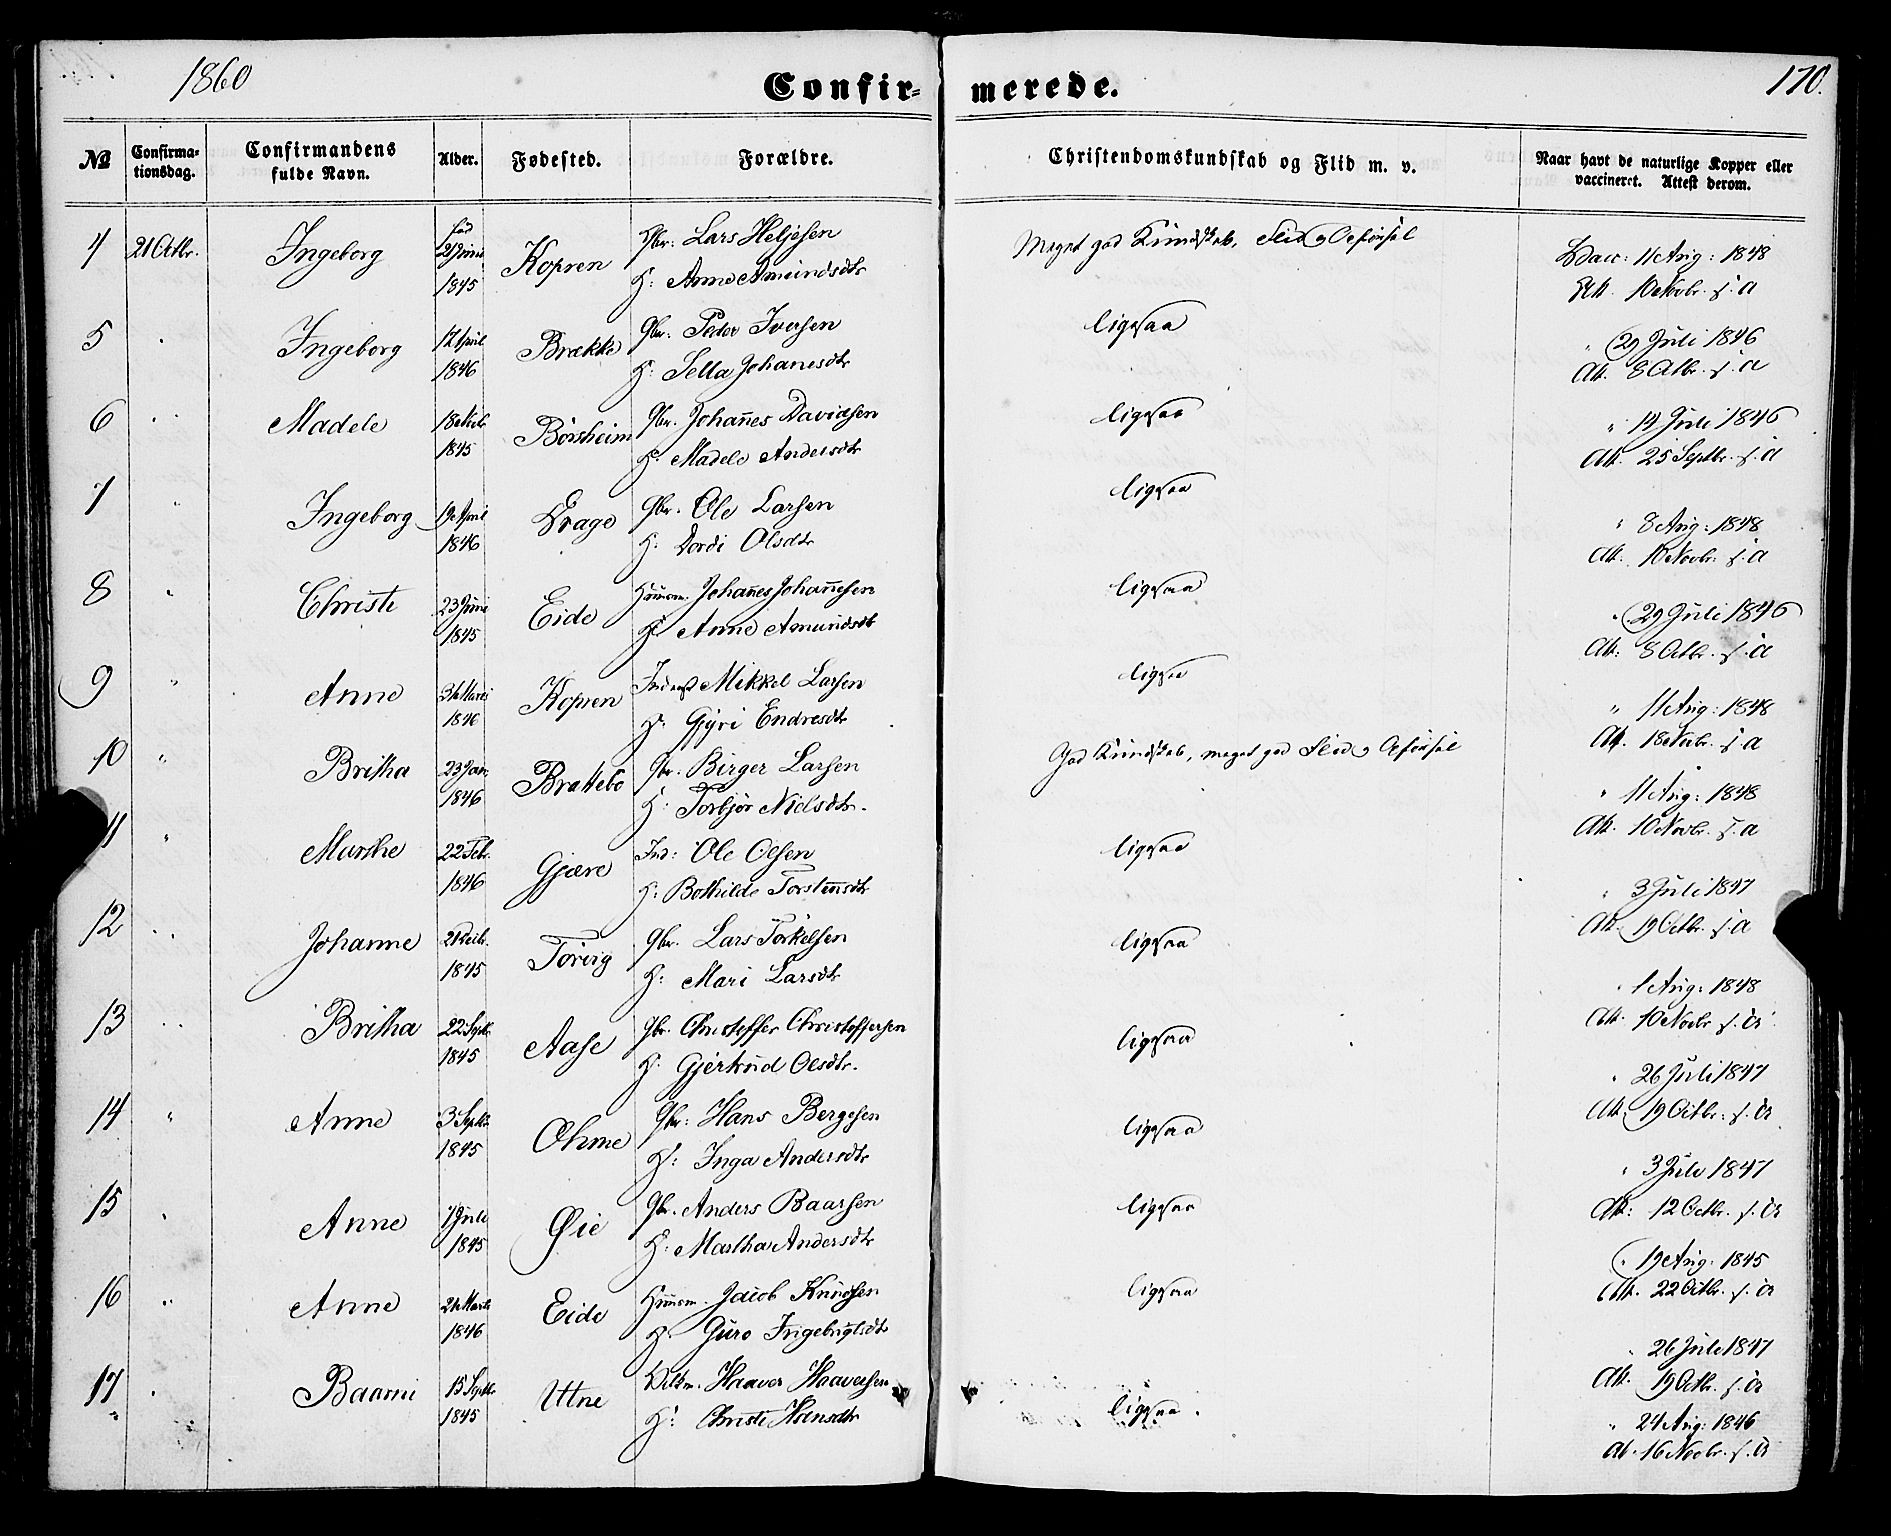 1860 Confir- merede. 170.
№ Confirma-tionsdag. Confirmandens fulde Navn. Alder. Fødested. Forældre. Christendomskundskab og Flid m. v. Naar havt de naturlige Kopper eller vaccineret. Attest derom.
4 21 Octbr. Ingeborg fød 21 Juni 1845 Kopren Gbr: Lars Heljesen Meget god Kundskab, Flid og Opførsel Vacc: 11 Aug: 1848
H: Anne Amundsdtr Att. 10 Novbr. s. a
5 Ingeborg 12 April 1846 Brække Gbr. Peder Iversen ligesaa " 29 Juli 1846
H: Sella Johanesdtr Att. 8 Octbr. s. a
6 Madele 1845 Børsheim Gbr. Johannes Davidsen ligesaa " 14 Juli 1846
H: Madele Andersdtr Att. 25 Septbr. s. a
7 Ingeborg 19 April 1846 Gbr. Ole Larsen ligesaa " 8 Aug: 1848
H: Dordi Olsdtr Att. 10 Novbr. s. a
8 " Christi 23 Juni 1845 Eide Huusm. Johannes Johannesen ligesaa " 29 Juli 1846
H: Anne Amundsdtr Att: 8 Octbr. s. a
9 " Anne 1846 Kopren Inderst Mikkel Larsen ligesaa " 11 Aug: 1848
H: Gyri Endresdtr Att. s. a
10 " Britha 23 Jan. 1846 Brattebø Gbr. Birger Larsen God Kundskab, meget god Flid og Opførsel " 11 Aug: 1848
H: Torbjør Nielsdtr. Att. 10 Novbr. s. a
11 " Marthe 22 Febr. 1846 Gjære Ind: Ole Olsen ligesaa " 3 Juli 1847
H: Bothilde Torstensdtr Att. 19 Octbr. s. a
12 " Johanne 1845 Torvig Gbr. Lars Torkelsen ligesaa " 1 Aug: 1848
H: Mari Larsdtr Att. 10 Novbr s. a
13 " Britha 22 Septbr. 1845 Aase Gbr. Christoffer Christoffersen ligesaa " 26 Juli 1847
H: Gjertrud Olsdtr. Att. 19 Octbr. s. a
14 " Anne 3 Septbr 1845 Ohme Gbr: Hans Bergesen ligesaa " 3 Juli 1847
H: Inga Andersdtr Att: 12 Octbr. s. a
15 Anne 7 Juli 1845 Øie Gbr. Anders Baarsen ligesaa " 19 Aug. 1845
H: Martha Andersdtr Att. 22 Octbr. s. a
16 " Anne 1846 Eide Huusm. Jacob Knudsen ligesaa " 26 Juli 1847
H. Guro Ingebrigtsdtr Att. 19 Octbr. s. a
17 Baarni 15 Septbr 1845 Utne Haaver Haaversen ligesaa. " 24 Aug: 1846
H: Christi Hansdtr Att. 16 Novbr. s. a